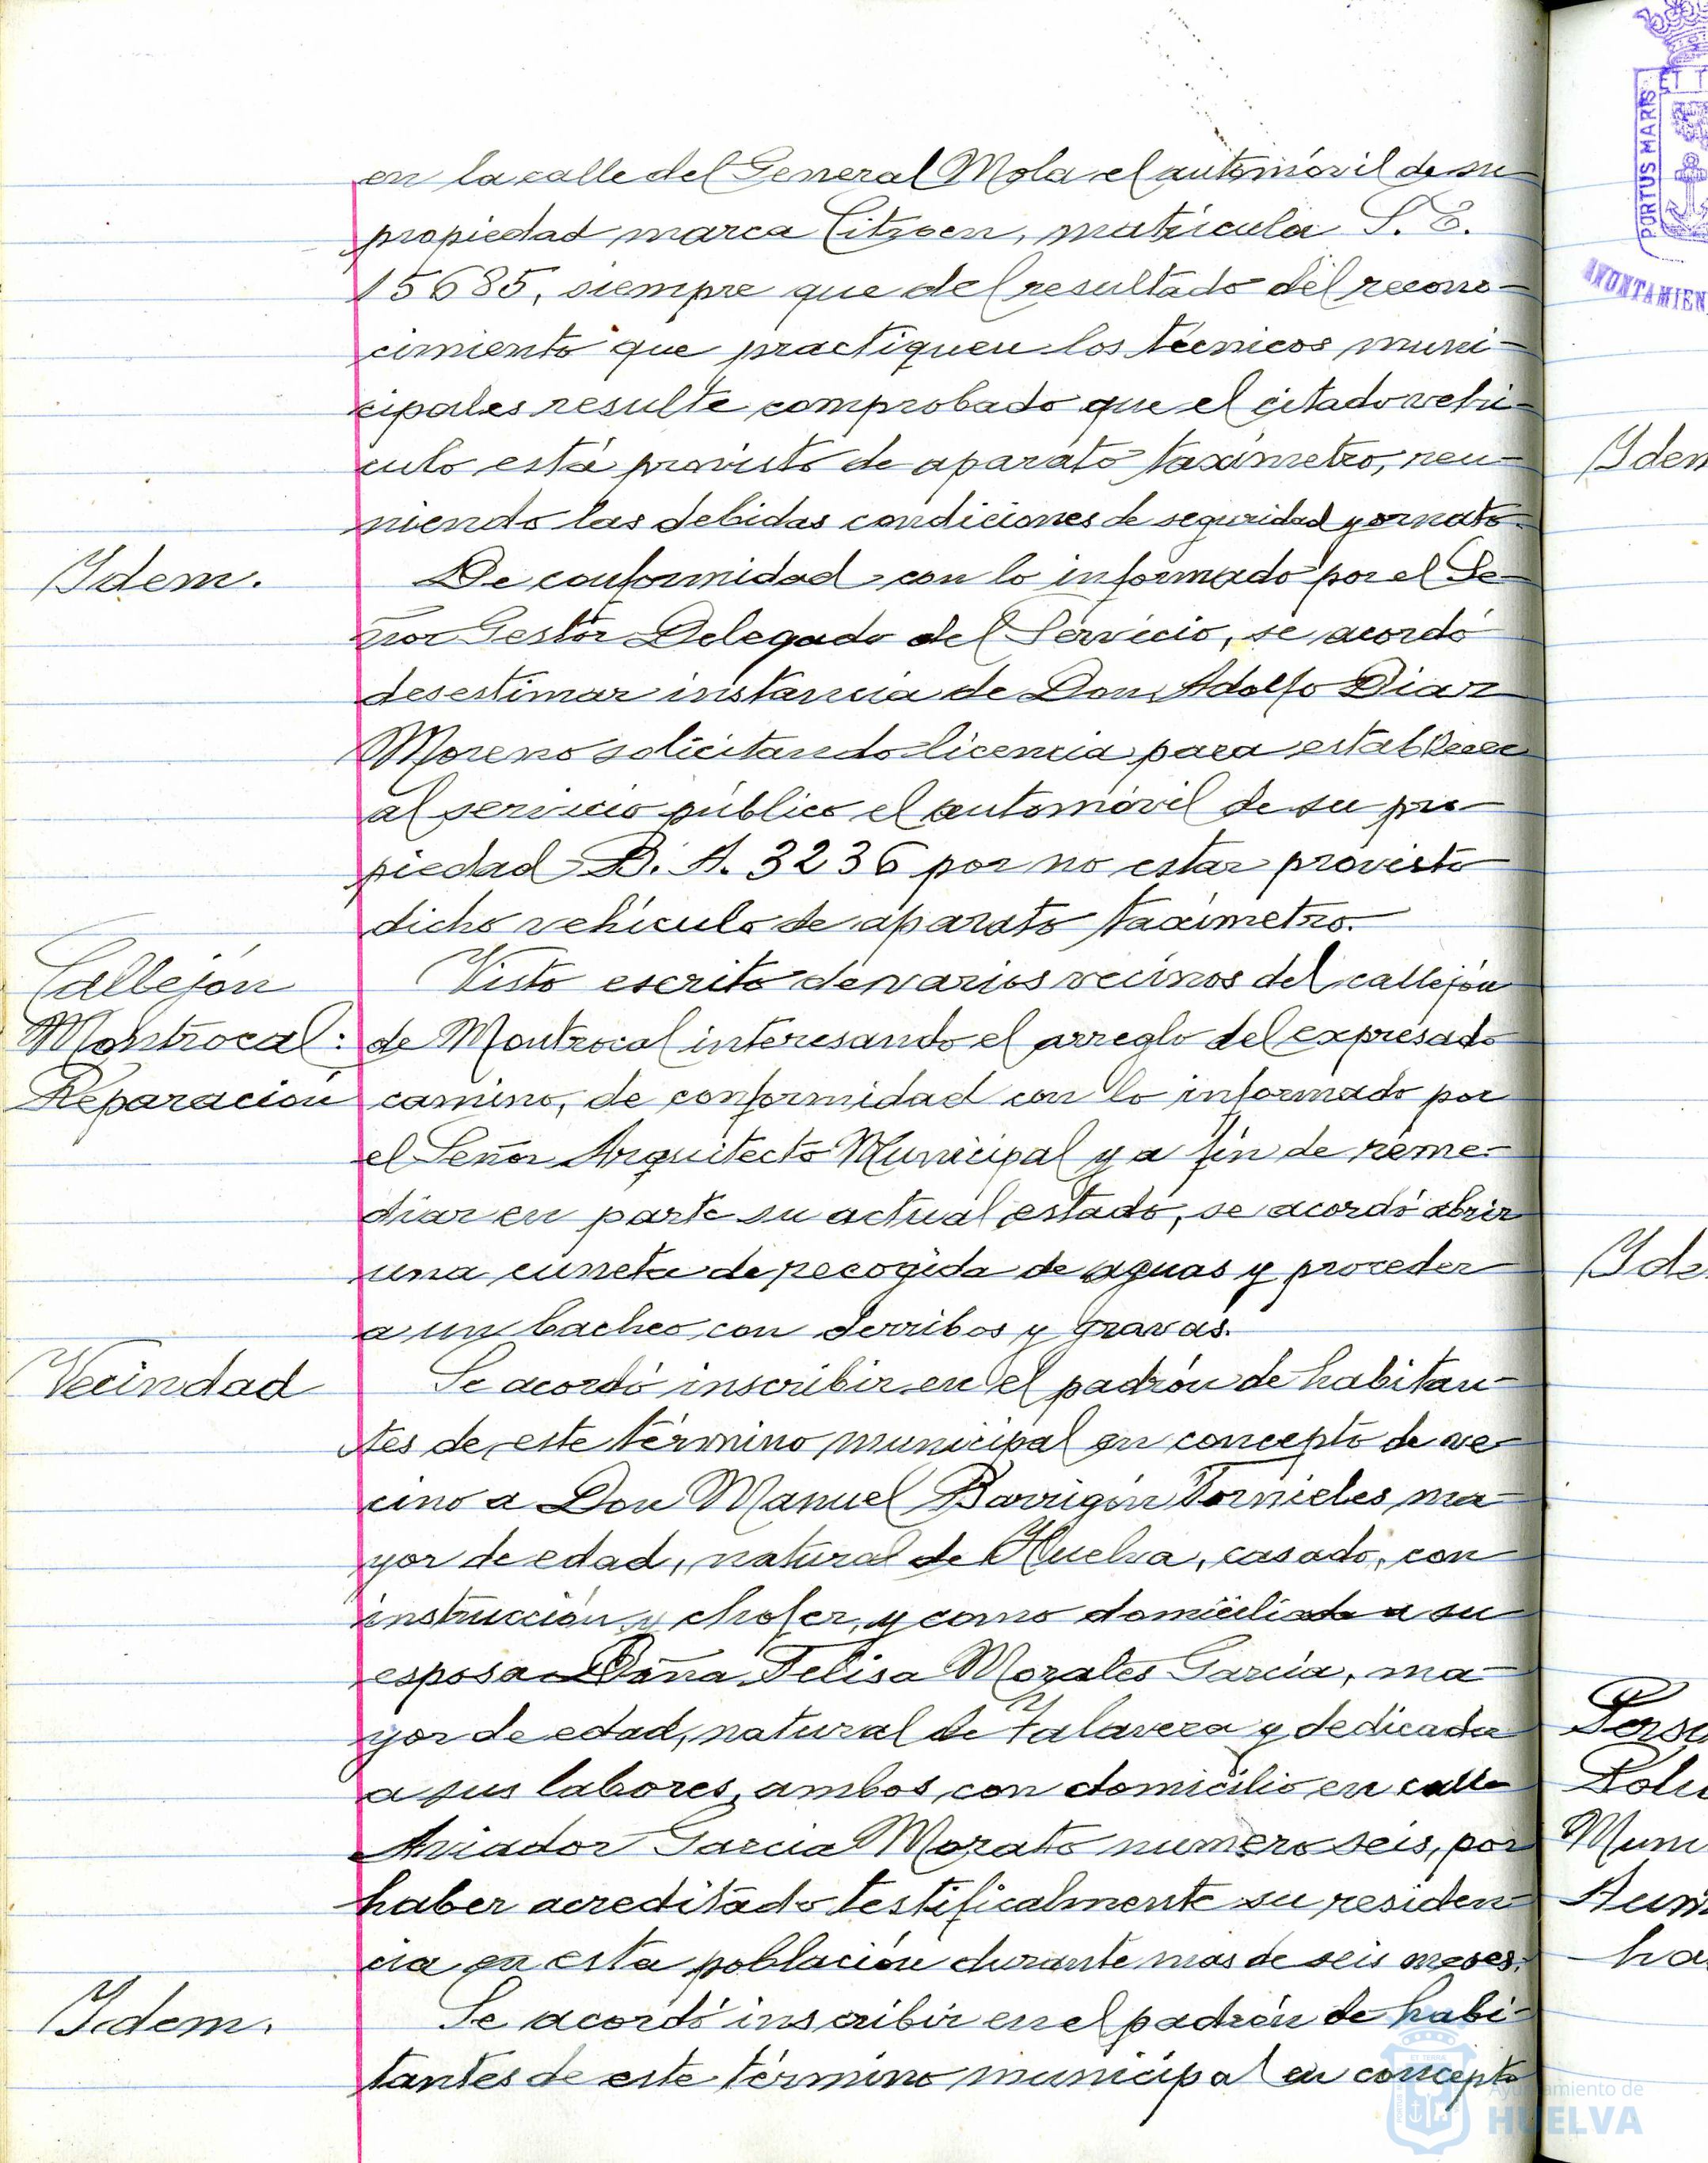 en la calle del General Mola el automóvil de su
propiedad marca Citroen, matrícula S. E.
15685, siempre que del resultado del recono-
cimiento que practiquen los técnicos muni-
cipales resulte comprobado que el citado vehí-
culo está provisto de aparato taxímetro, reu-
niendo las debidas condiciones de seguridad y ornato.
Idem.
De conformidad con lo informado por el Se-
ñor Gestor Delegado del Servicio, se acordó
desestimar instancia de Don Adolfo Diaz
Moreno solicitando licencia para establecer
al servicio público el automóvil de su pro-
piedad B. A. 3236 por no estar provisto
dicho vehículo de aparato taxímetro.
Callejón
Montrocal:
Reparación
Visto escrito de varios vecinos del callejón
de Montrocal interesando el arreglo del expresado
camino, de conformidad con lo informado por
el Señor Arquitecto Municipal y a fin de reme-
diar en parte su actual estado, se acordó abrir
una cuneta de recogida de aguas y proceder
a un bacheo con derribos y gravas.
Vecindad
Se acordó inscribir en el padrón de habitan-
tes de este término municipal en concepto de ve-
cino a Don Manuel Barrigón Tornieles, ma-
yor de edad, natural de Huelva, casado, con
instrucción y chofer, y como domiciliada a su
esposa Doña Felisa Morales García, ma-
yor de edad, natural de Talavera y dedicada
a sus labores, ambos con domicilio en calle
Aviador Garcia Morato numero seis, por
haber acreditado testificalmente su residen-
cia en esta población durante mas de seis meses.
Idem.
Se acordó inscribir en el padrón de habi-
tantes de este término municipal en concepto
PORTUS MARIS
ET T
AYUNTAMIEN
Idem
Ide
Perso
Muni
Aum
ha
Ayuntamiento de
HUELVA